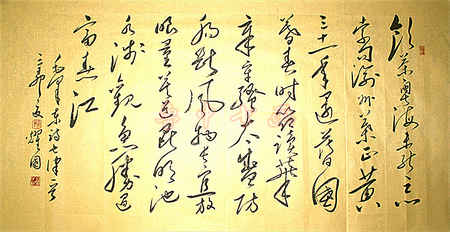 飲茶粵海未能忘
索句渝州葉正黃
三十一年還舊國
時節讀華
章牢騷太盛防
腸斷風物長宜放
眼量莫道昆明池
水淺觀魚勝過
富春江
毛澤東詩七律一首